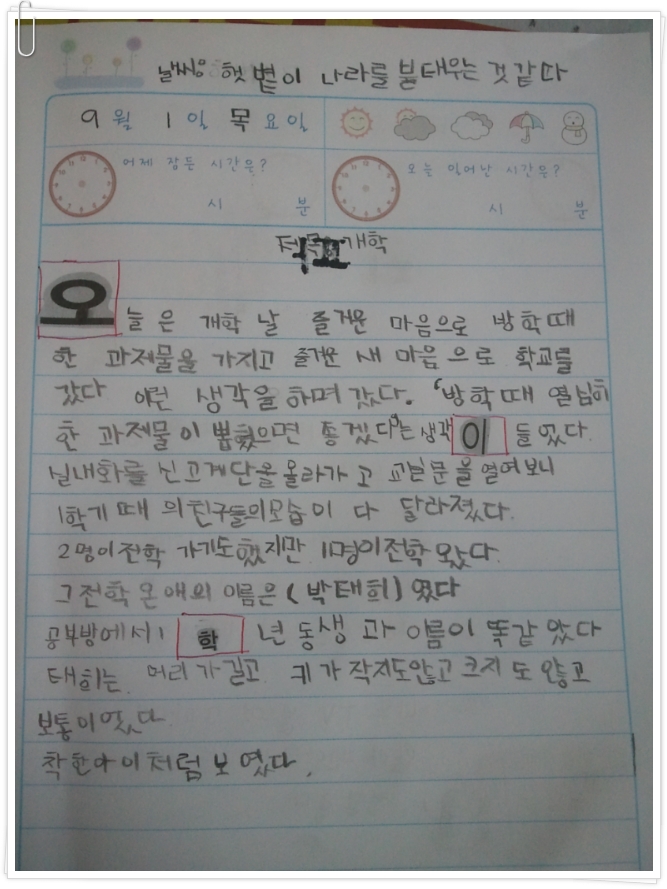 날씨: 햇볕이 나라를 불태우는 것 같다
9 월 1 일 목 요일
어제 잠든 시간은?
시 분
오늘 일어난 시간은?
시 분
개학
오늘은 개학 날 즐거운 마음으로 방학때
한 과제물을 가지고 즐거운 새 마음으로 학교를
갔다 이런 생각을 하며 갔다. '방학때 열심히
한 과제물이 뽑혔으면 좋겠다'는 생각이 들었다.
실내화를 신고 계단을 올라가고 교실문을 열여보니
1학기 때 의 친구들의 모습이 다 달라졌다.
2명이 전학 가기도 했지만 1명이 전학 왔다.
그 전학 온 애의 이름은 (박태희) 였다
공부방에서 1학년 동생 과 이름이 똑같았다
태희는 머리가 길고 키가 작지도않고 크지도 않고
보통이였다.
착한아이처럼 보였다.